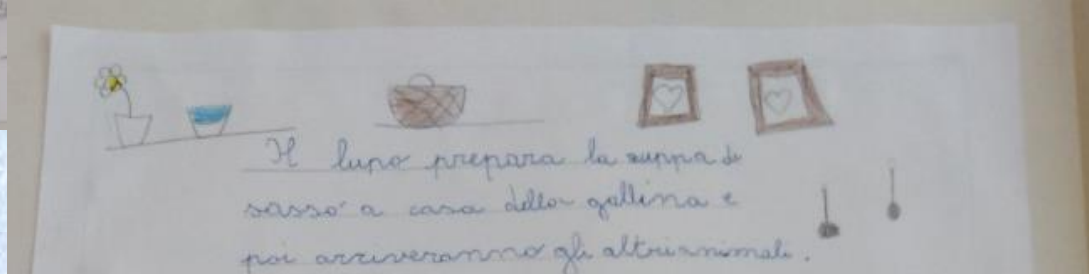 Il lupo prepara la zuppa di
sasso a casa della gallina e
poi arriveranno gli altri animali.